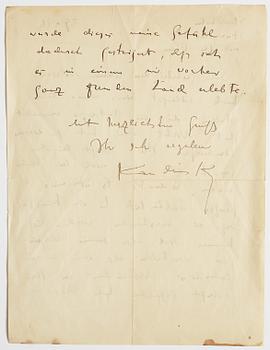 wurde dieses meine Gefühl
dadurch gesteigert, dass ich
es in einem mir vorher
ganz fremden Land erlebte.
Mit herzlichsten Gruß
Ihr sehr ergebener
Kandinsky